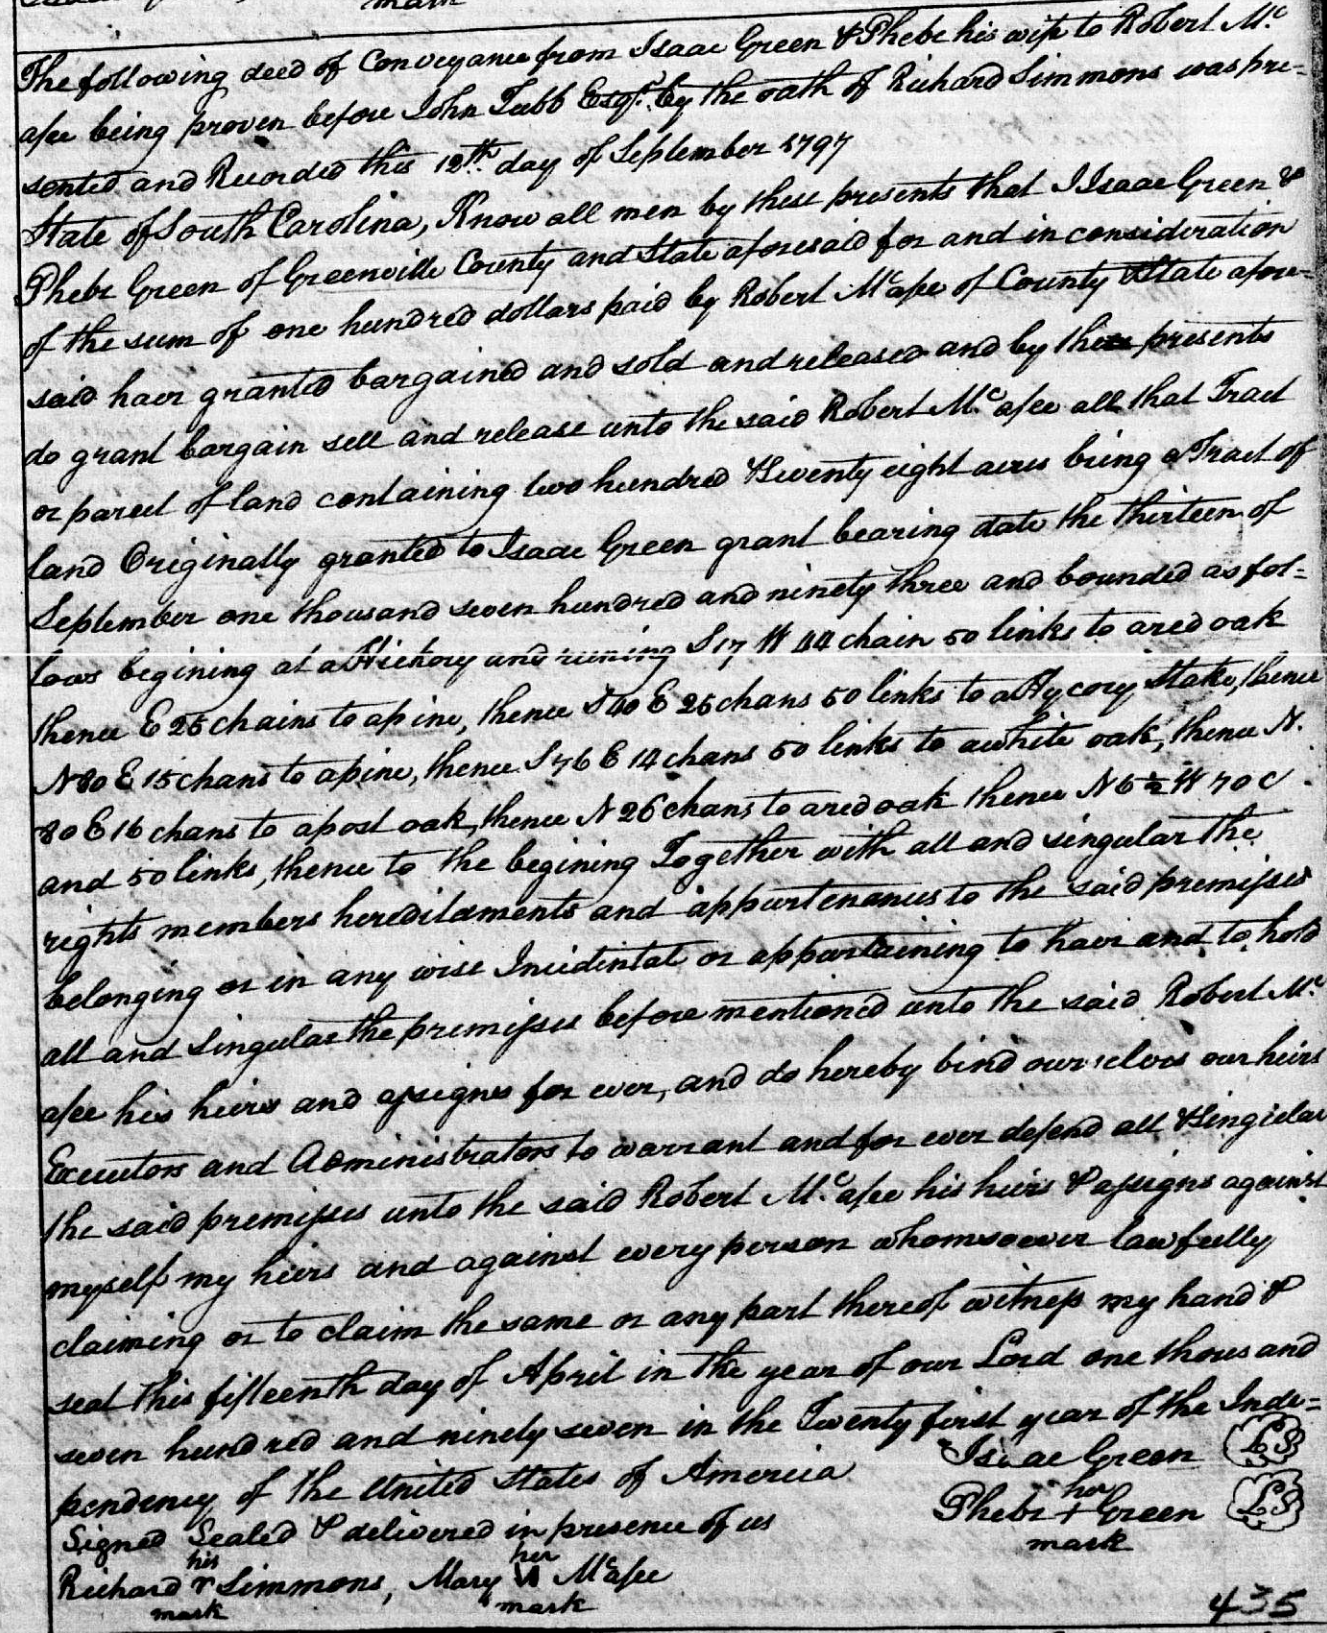 mark
The following deed of Conveyance from Isaac Green & Phebe his wife to Robert Mc
afee being proven before John Tubb Esqr. by the oath of Richard Simmons was pre=
sented and Recorded this 12th day of September 1797
State of South Carolina, Know all men by these presents that I Isaac Green &
Phebe Green of Greenville County and State aforesaid for and in consideration
of the sum of one hundred dollars paid by Robert Mcafee of County & State afore=
said have granted bargained and sold and released and by these presents
do grant bargain sell and release unto the said Robert Mcafee all that Tract
or parcel of land containing two hundred & twenty eight acres being a Tract of
land Originally granted to Isaac Green grant bearing date the thirteen of
September one thousand seven hundred and ninety three and bounded as fol=
lows begining at a Hickory and runing S 17 W 44 chain 50 links to a red oak
thence E 25 chains to a pine, thence S 40 E 25 chans 50 links to a Hycory Stake, thence
N 80 E 15 chans to a pine, thence S 76 E 14 chans 50 links to a white oak, thence N.
80 E 16 chans to a post oak, thence N 26 chans to a red oak thence N 6 ½ W 70 C
and 50 links, thence to the begining Together with all and singular the
rights members hereditaments and appurtenances to the said premises
belonging or in any wise Incidintal or appurtaining to have and to hold
all and Singular the premises before mentioned unto the said Robert Mc
afee his heirs and assigns for ever, and do hereby bind ourselves our heirs
Executors and Administrators to warrant and for ever defend all & Singular
the said premises unto the said Robert Mcafee his heirs & assigns against
myself my heirs and against every person whomsoever lawfully
claiming or to claim the same or any part thereof witness my hand &
seal this fifteenth day of April in the year of our Lord one thousand
seven hundred and ninety seven in the Twenty first year of the Inde=
pendency of the United States of America
Isaac Green LS
Signed Sealed & delivered in presence of us
her
Phebe + Green LS
mark
his her
Richard r Simmons, Mary Mcafee
mark mark
435